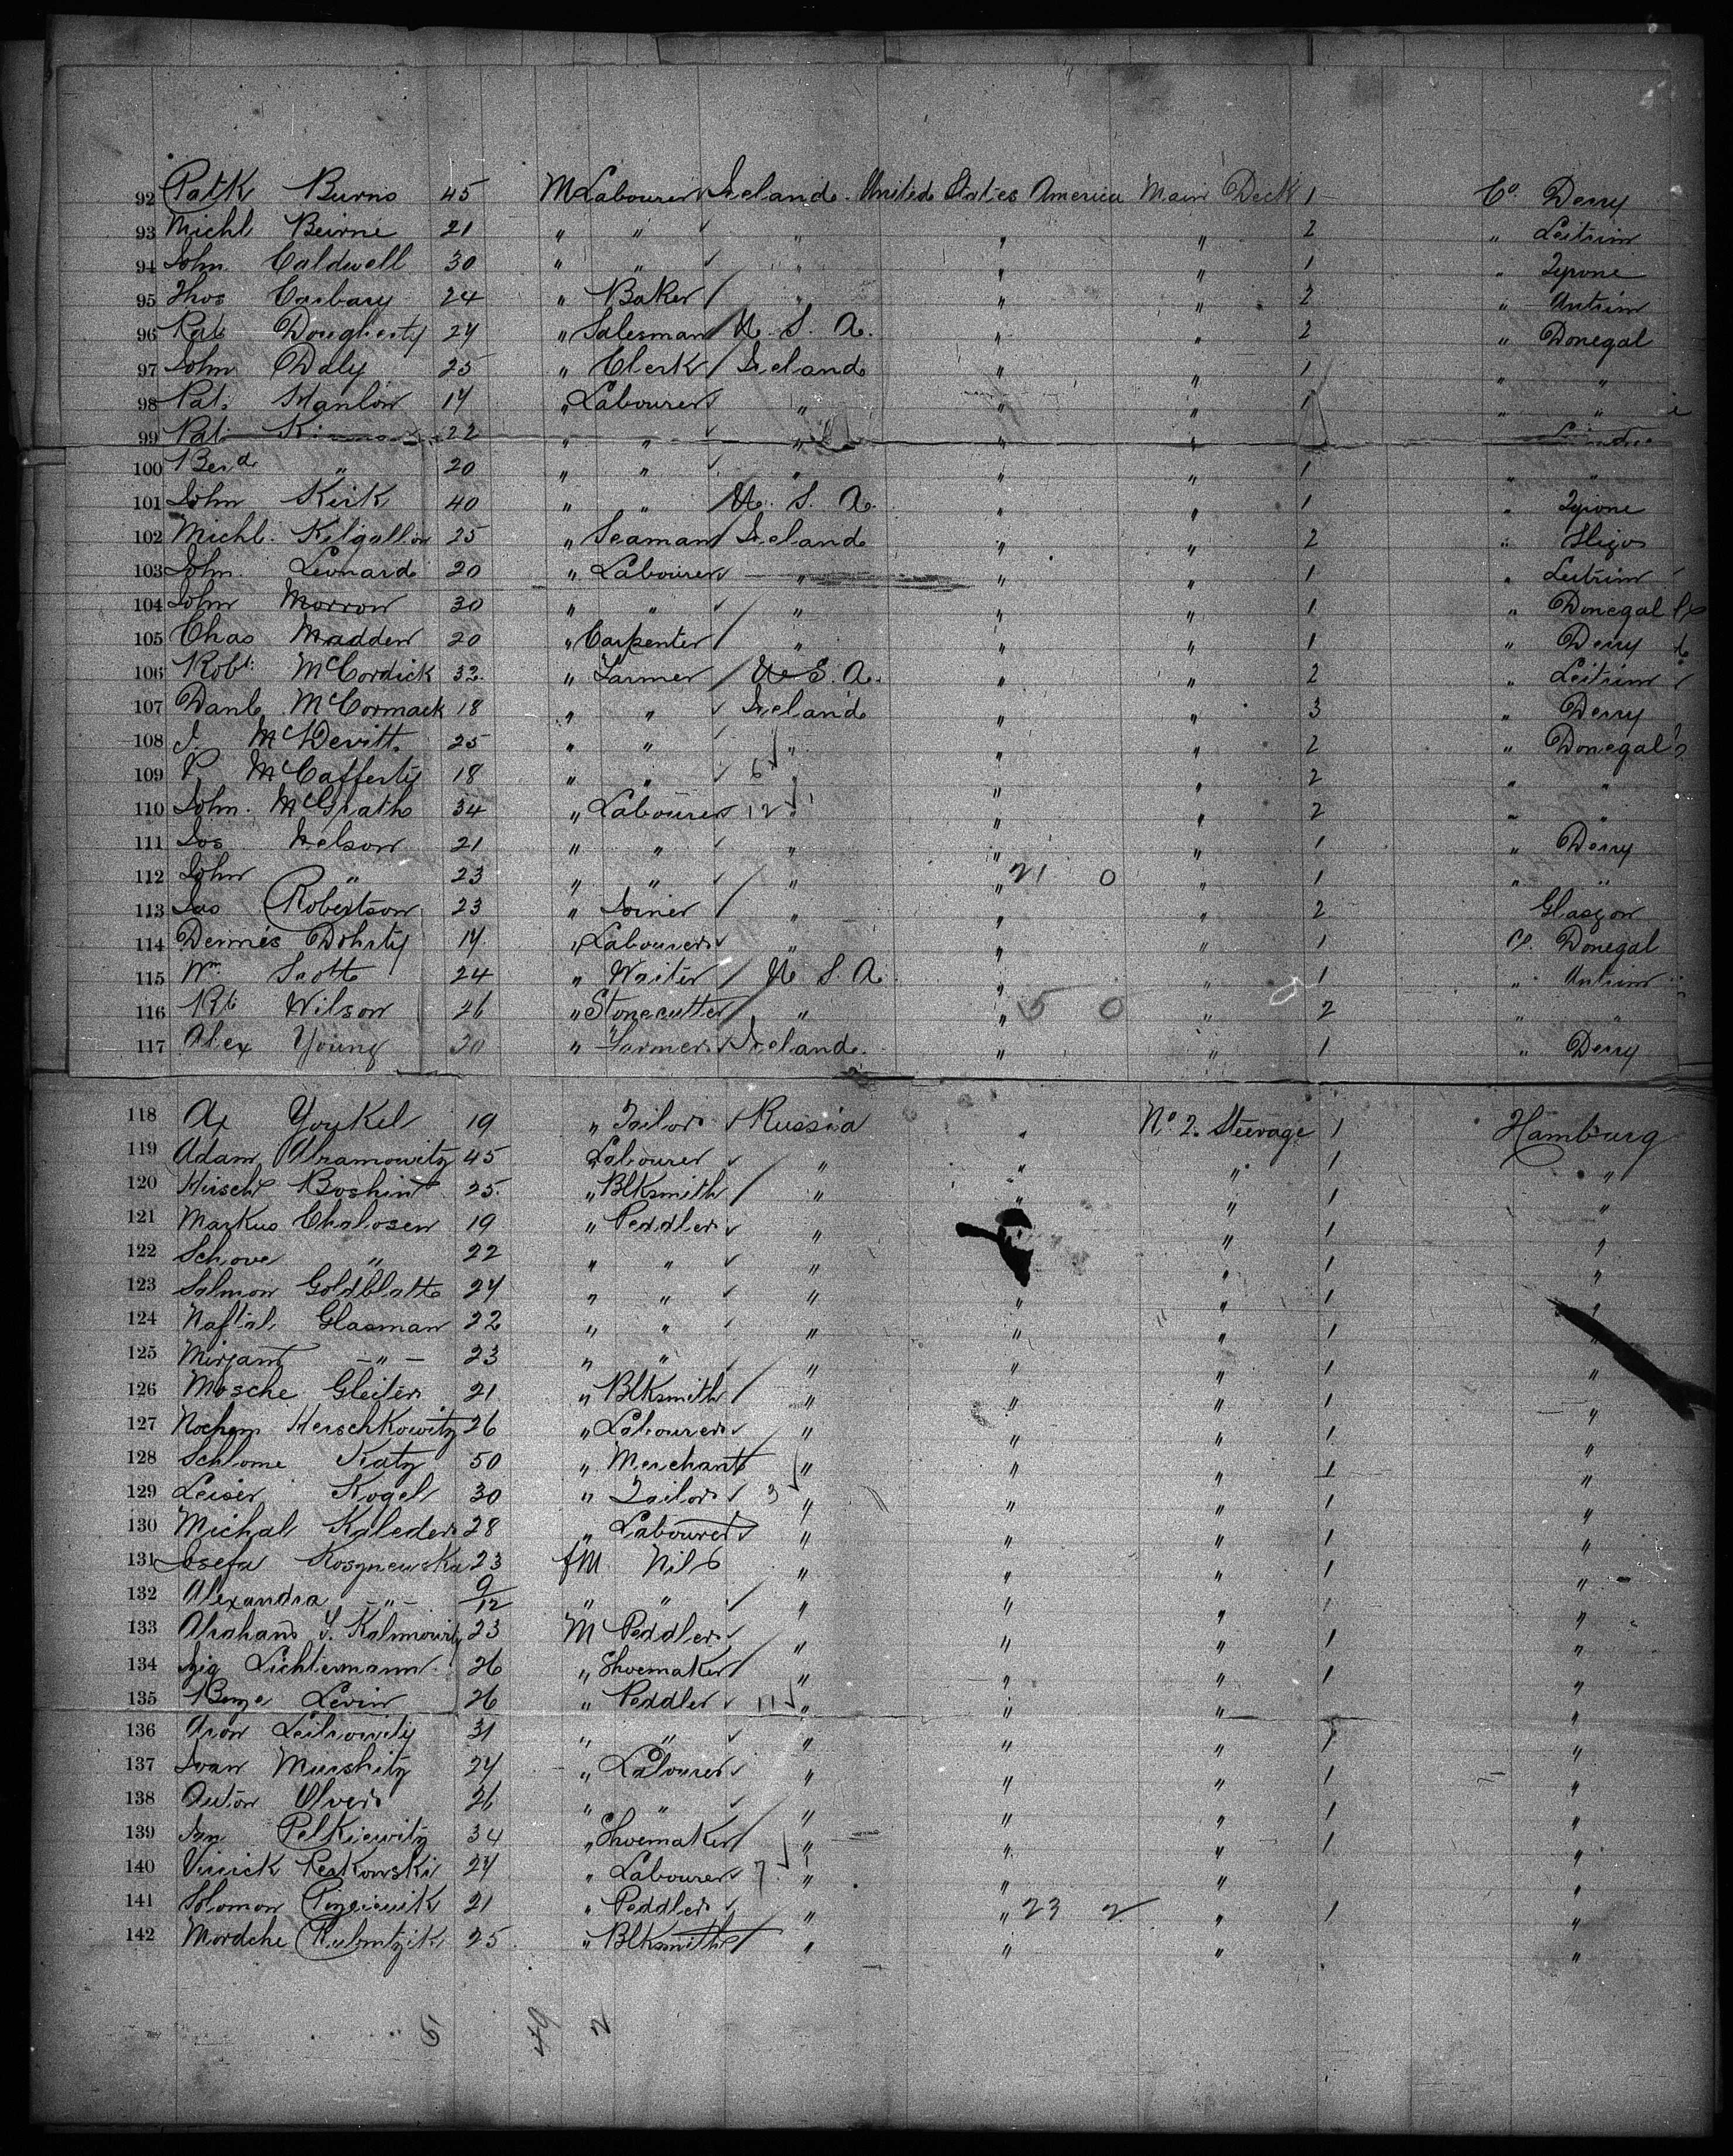 92 Patk Burns 45 M Labourer Ireland United States America Main Deck 1 Co. Derry
93 Michl Beirne 21 " " " " " 2 " Leitrim
94 John Caldwell 30 " " " " " 1 " Tyrone
95 Thos Carbary 24 " Baker " " " 2 " Antrim
96 Pat Dougherty 24 " Salesman U. S. A. " " 2 " Donegal
97 John Daly 25 " Clerk Ireland " " 1 " "
98 Pat. Hanlon 14 " Labourer " " " 1 " "
99 Pat 22 " " " " "
100 Berd " 20 " " " " " 1 " "
101 John Kirk 40 " " U. S. A. " " 1 " Tyrone
102 Michl. Kilgallon 25 " Seaman Ireland " " 2 " Sligo
103 John Leonard 20 " Labourer " " " 1 " Leitrim
104 John Morrow 30 " " " " " 1 " Donegal
105 Chas Madden 20 " Carpenter " " " 1 " Derry
106 Robt. McCordick 32 " Farmer U. S. A. " " 2 " Leitrim
107 Danl McCormack 18 " " Ireland " " 3 " Derry
108 J McDevitt 25 " " " " " 2 " Donegal
109 P McCafferty 18 " " 6 " " " 2 " "
110 John. McGrath 34 " Labourer 12 " " " 2 " "
111 Jos Nelson 21 " " " " " 1 " Derry
112 John " 23 " " " " 21 0 " 1 " "
113 Jas Robertson 23 " Joiner " " " 2 Glasgow
114 Dennis Dohrty 14 " Labourer " " " 1 Co. Donegal
115 Wm Scott 24 " Waiter U S A " " 1 " Antrim
116 Rt Wilson 26 " Stonecutter " " 5 0 " 2 " "
117 Alex Young 30 " Farmer Ireland " " 1 " Derry
118 Ax Youkel 19 " Tailor Russia " No 2. Steerage 1 Hamburg
119 Adam Abramowitz 45 " Labourer " " " 1 "
120 Hirsch Boshin 25 " Blksmith " " " 1 "
121 Markus Chalosen 19 " Peddler " " 1 "
122 Schove " 22 " " " " 1 "
123 Salmon Goldblatt 24 " " " " " 1 "
124 Naftal Glasman 22 " " " " " 1 "
125 Mirjam - " - 23 " " " " " 1 "
126 Mosche Gleiter 21 " Blksmith " " " 1 "
127 Nochem Herschkowitz 26 " Labourer " " " 1 "
128 Schlome Katz 50 " Merchant " " " 1 "
129 Leiser Kogel 30 " Tailor 3 " " " 1 "
130 Michal Kaleder 28 " Labourer " " " 1 "
131 Josefa 23 fM Nil " " " 1 "
132 Alexandra - " - 9/12 " " " " " "
133 Abraham 23 M Peddler " " " 1 "
134 Lichtermann 26 " Shoemaker " " " 1 "
135 Levin 26 " Peddler 11 " " " "
136 Aron 31 " " " " " 1 "
137 Ivan 24 " Labourer " " " 1 "
138 Anton 26 " " " " " 1 "
139 Jan Pelkiewitz 34 " Shoemaker " " " 1 "
140 24 " Labourer 7 " " " "
141 Solomon 21 " Peddler " " 23 2 " 1 "
142 Mordche 25 " Blksmith " " " "
5 49 2